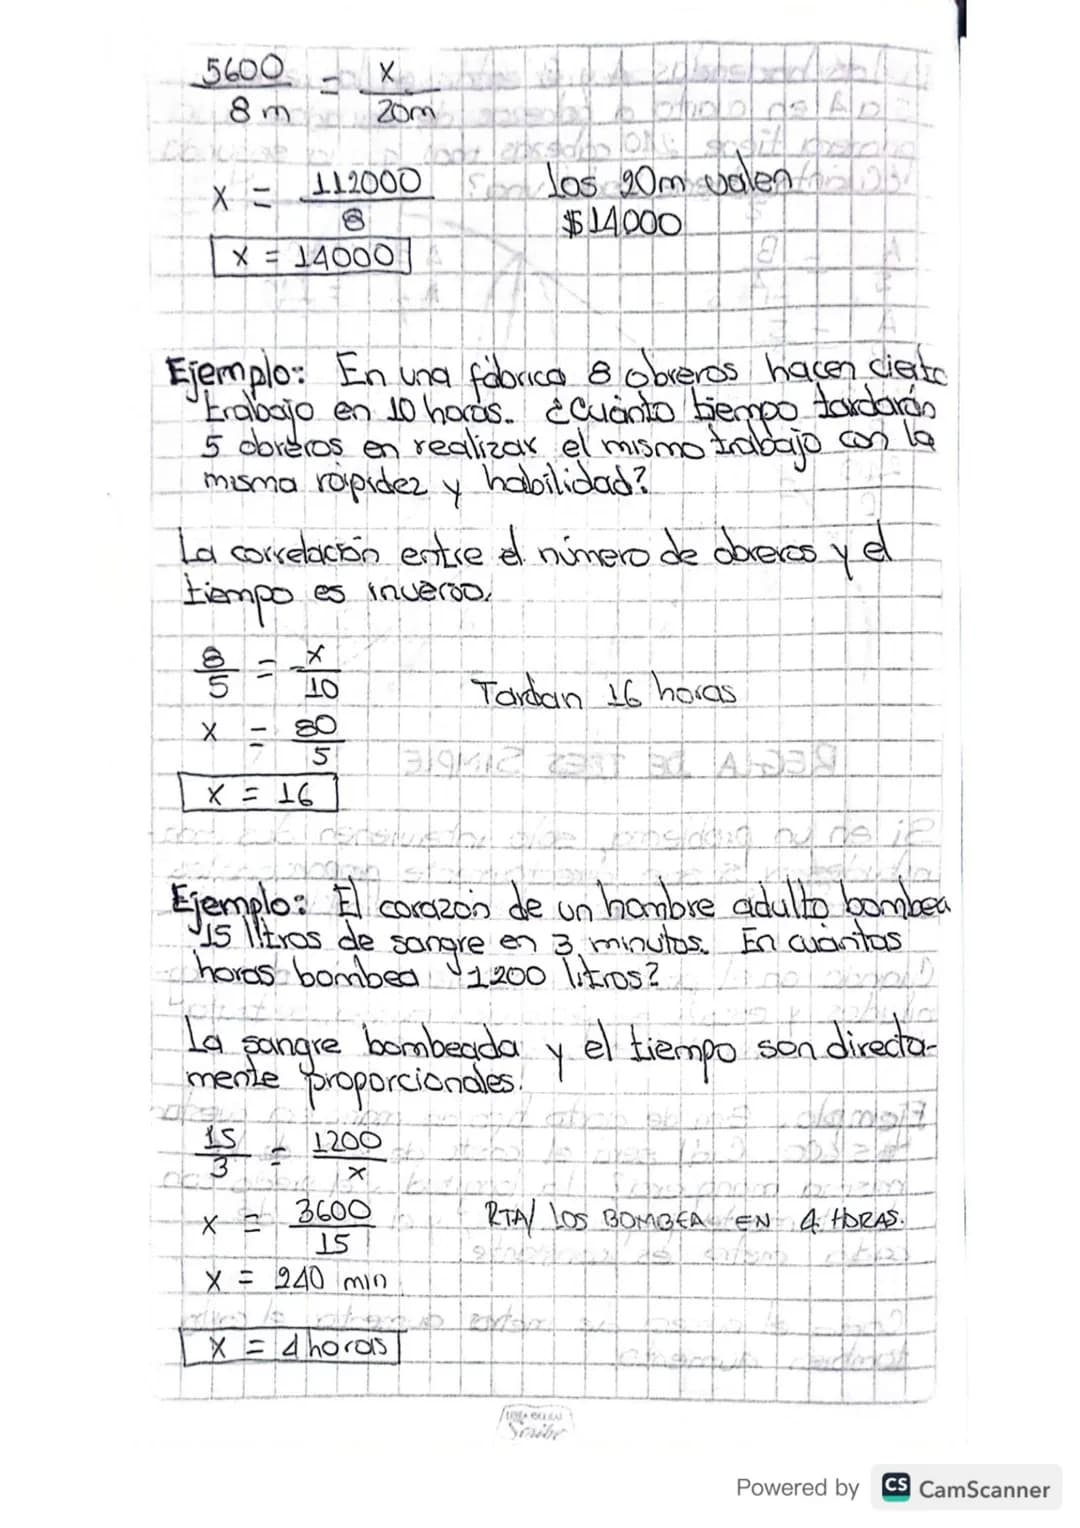 5600 = x
8 m 20m
x = 112000
8
x = 14000
los 20m valen
$14000
Ejemplo: En una fábrica 8 obreros hacen cierto
trabajo en 10 horas. ¿Cuánto tiempo tardarán
5 obreros en realizar el mismo trabajo con la
misma rápidez y habilidad?
La correlación entre el número de obreros y el
tiempo es inverso.
8 = x
5 10
x = 80
5
x = 16
Tardan 16 horas
Ejemplo: El corazón de un hombre adulto bombea
15 litros de sangre en 3 minutos. En cuántas
horas bombea 1200 litros?
La sangre bombeada y el tiempo son directa-
mente proporcionales.
15 = 1200
3 x
x = 3600
15
x = 240 min
x = 4 horas
RTA/ LOS BOMBEA EN 4 HORAS.
Scribe
Powered by CS CamScanner